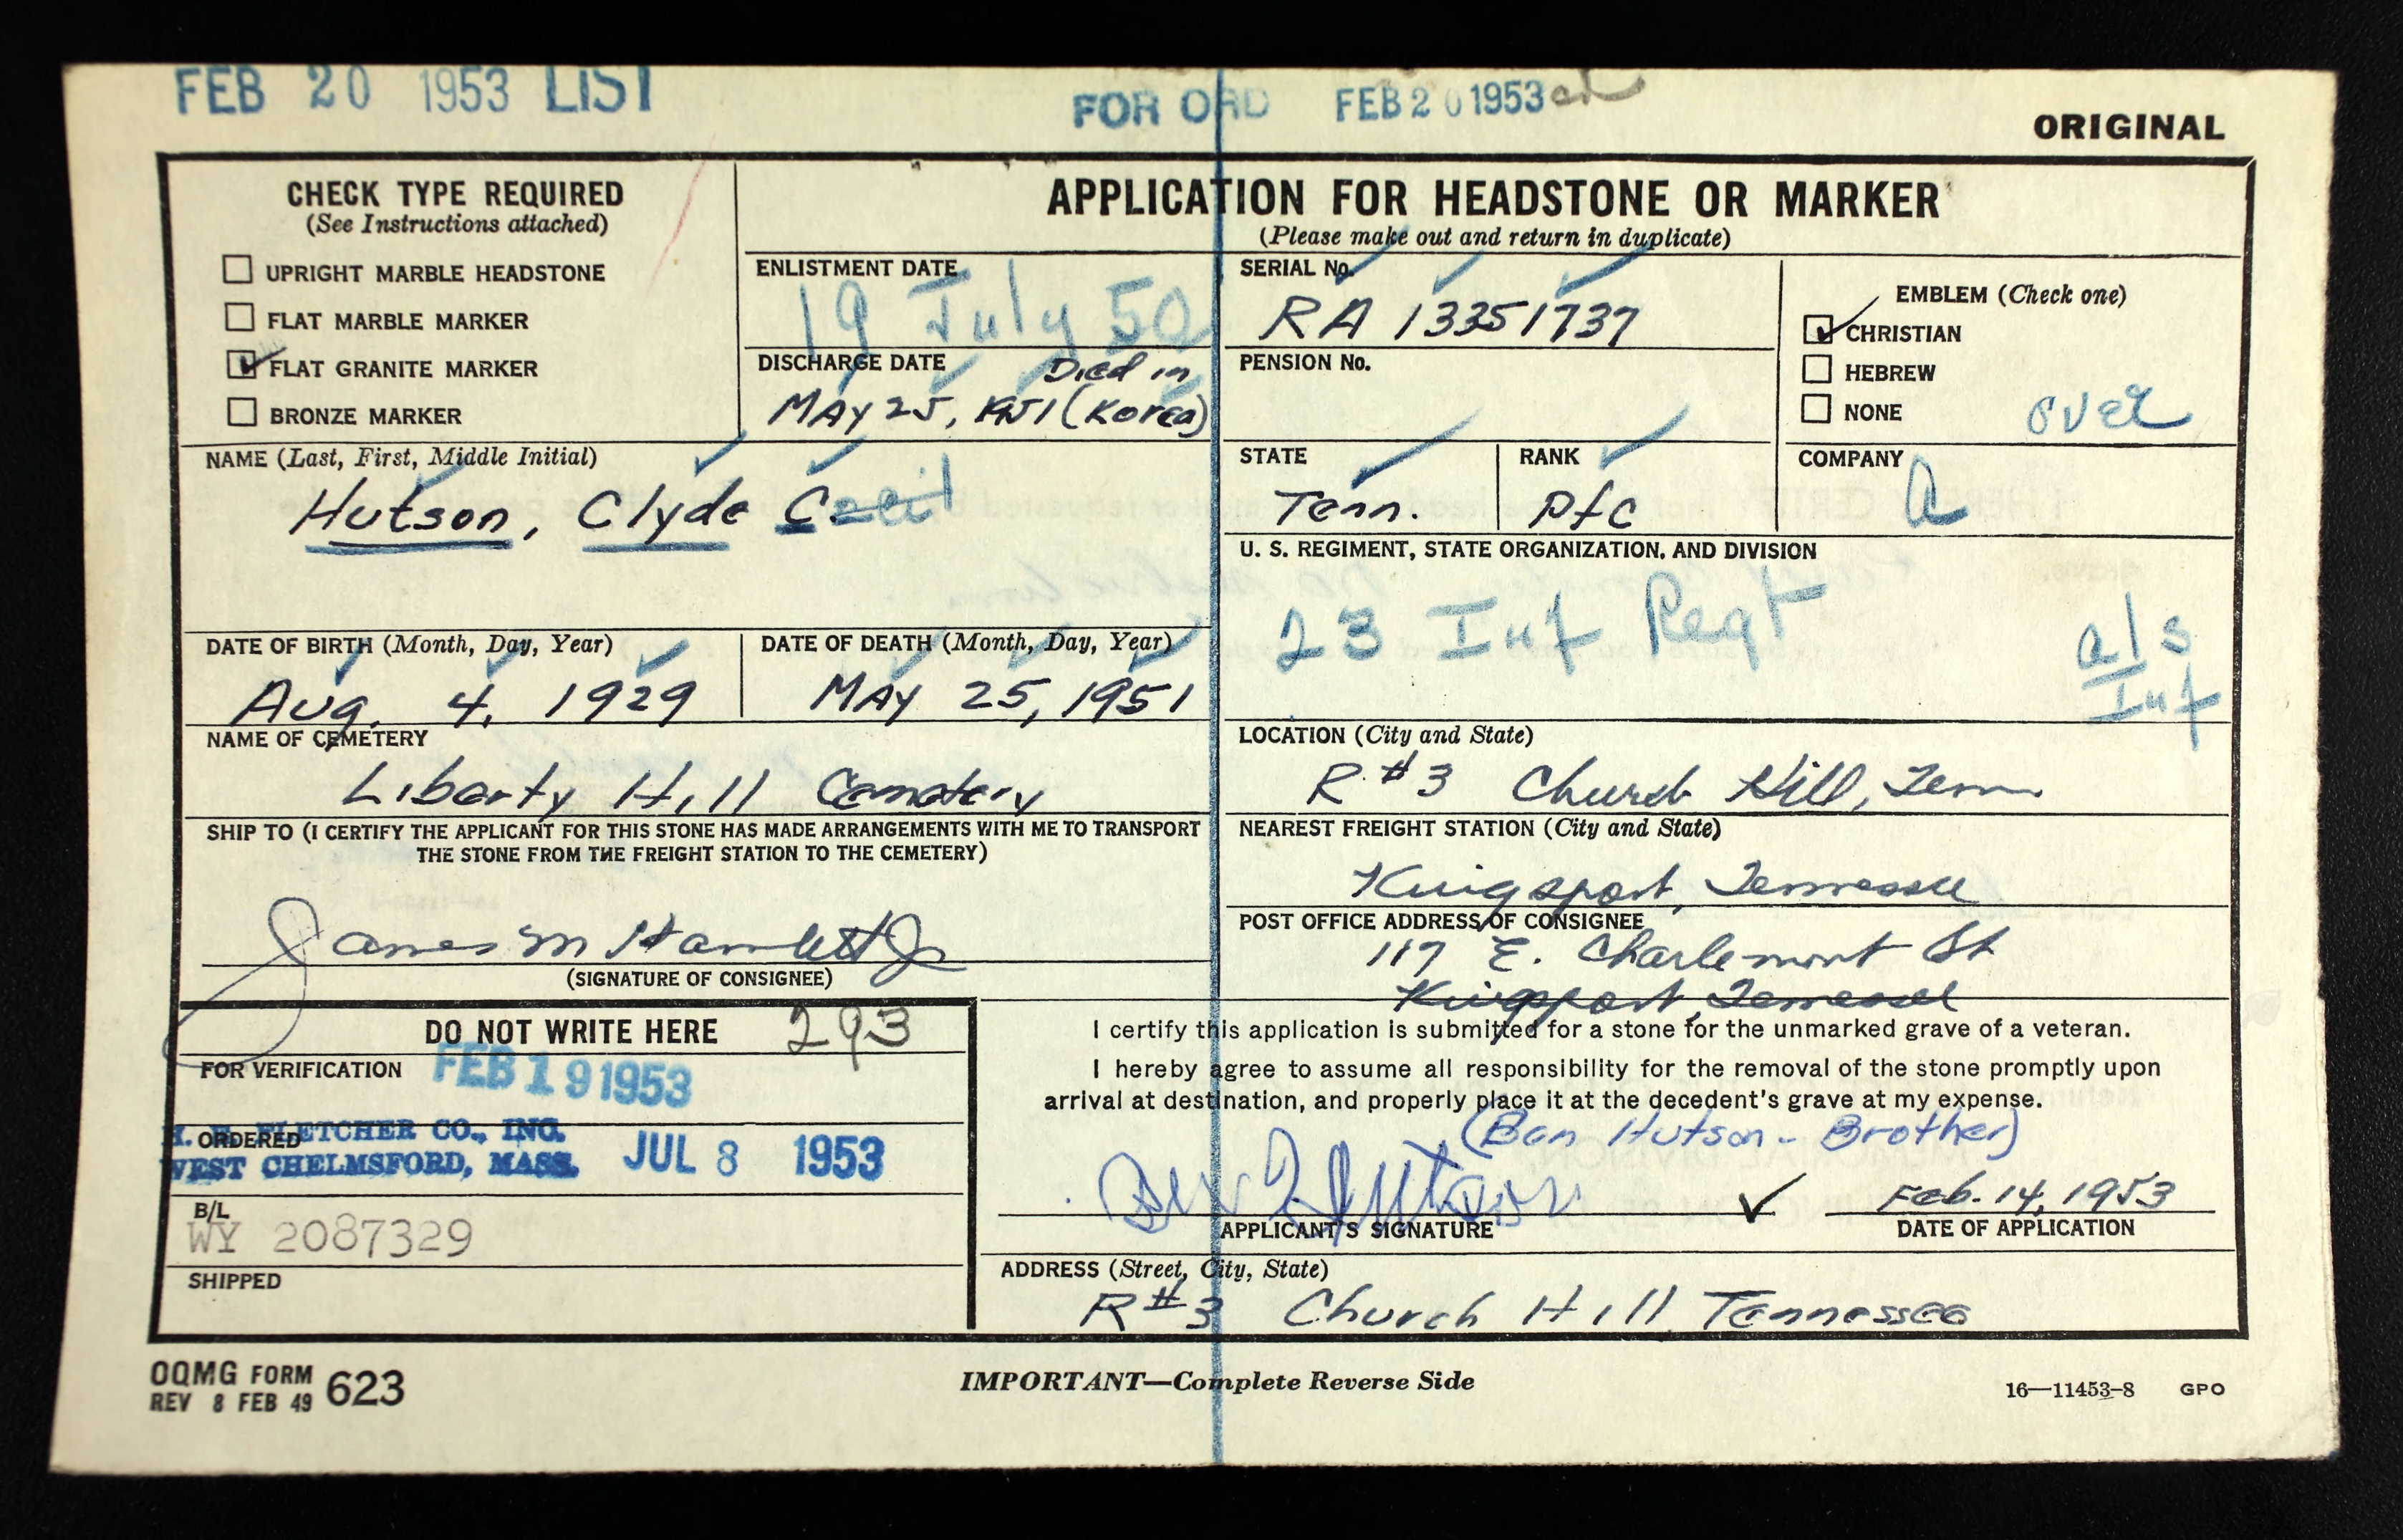 FEB 20 1953 LIST
FOR ORD FEB 20 1953
ORIGINAL
CHECK TYPE REQUIRED
(See Instructions attached)
UPRIGHT MARBLE HEADSTONE
FLAT MARBLE MARKER
FLAT GRANITE MARKER
BRONZE MARKER
APPLICATION FOR HEADSTONE OR MARKER
(Please make out and return in duplicate)
ENLISTMENT DATE
19 July 50
DISCHARGE DATE Died in
MAY 25, (Korea)
SERIAL No.
RA 13351737
PENSION No.
EMBLEM (Check one)
CHRISTIAN
HEBREW
NONE
over
NAME (Last, First, Middle Initial)
Hutson, Clyde Cecil
STATE
Tenn.
RANK
Pfc
COMPANY
A
U. S. REGIMENT, STATE ORGANIZATION, AND DIVISION
23 Inf Regt
a/s
Inf
DATE OF BIRTH (Month, Day, Year)
Aug. 4, 1929
DATE OF DEATH (Month, Day, Year)
MAY 25, 1951
NAME OF CEMETERY
Liberty Hill Cemetery
LOCATION (City and State)
R #3 Church Hill, Tenn
SHIP TO (I CERTIFY THE APPLICANT FOR THIS STONE HAS MADE ARRANGEMENTS WITH ME TO TRANSPORT
THE STONE FROM THE FREIGHT STATION TO THE CEMETERY)
James M Hamlett Jr
(SIGNATURE OF CONSIGNEE)
NEAREST FREIGHT STATION (City and State)
Kingsport, Tennessee
POST OFFICE ADDRESS OF CONSIGNEE
117 E. Charlemont St
Kingsport, Tennessee
DO NOT WRITE HERE 293
FOR VERIFICATION FEB 19 1953
ORDERED
FLETCHER CO., INC.
WEST CHELMSFORD, MASS. JUL 8 1953
B/L
WY 2087329
SHIPPED
I certify this application is submitted for a stone for the unmarked grave of a veteran.
I hereby agree to assume all responsibility for the removal of the stone promptly upon
arrival at destination, and properly place it at the decedent's grave at my expense.
(Ben Hutson - Brother)
Ben Hutson
Feb. 14, 1953
APPLICANT'S SIGNATURE
DATE OF APPLICATION
ADDRESS (Street, City, State)
R #3 Church Hill Tennessee
OQMG FORM 623
REV 8 FEB 49
IMPORTANT—Complete Reverse Side
16—11453-8 GPO